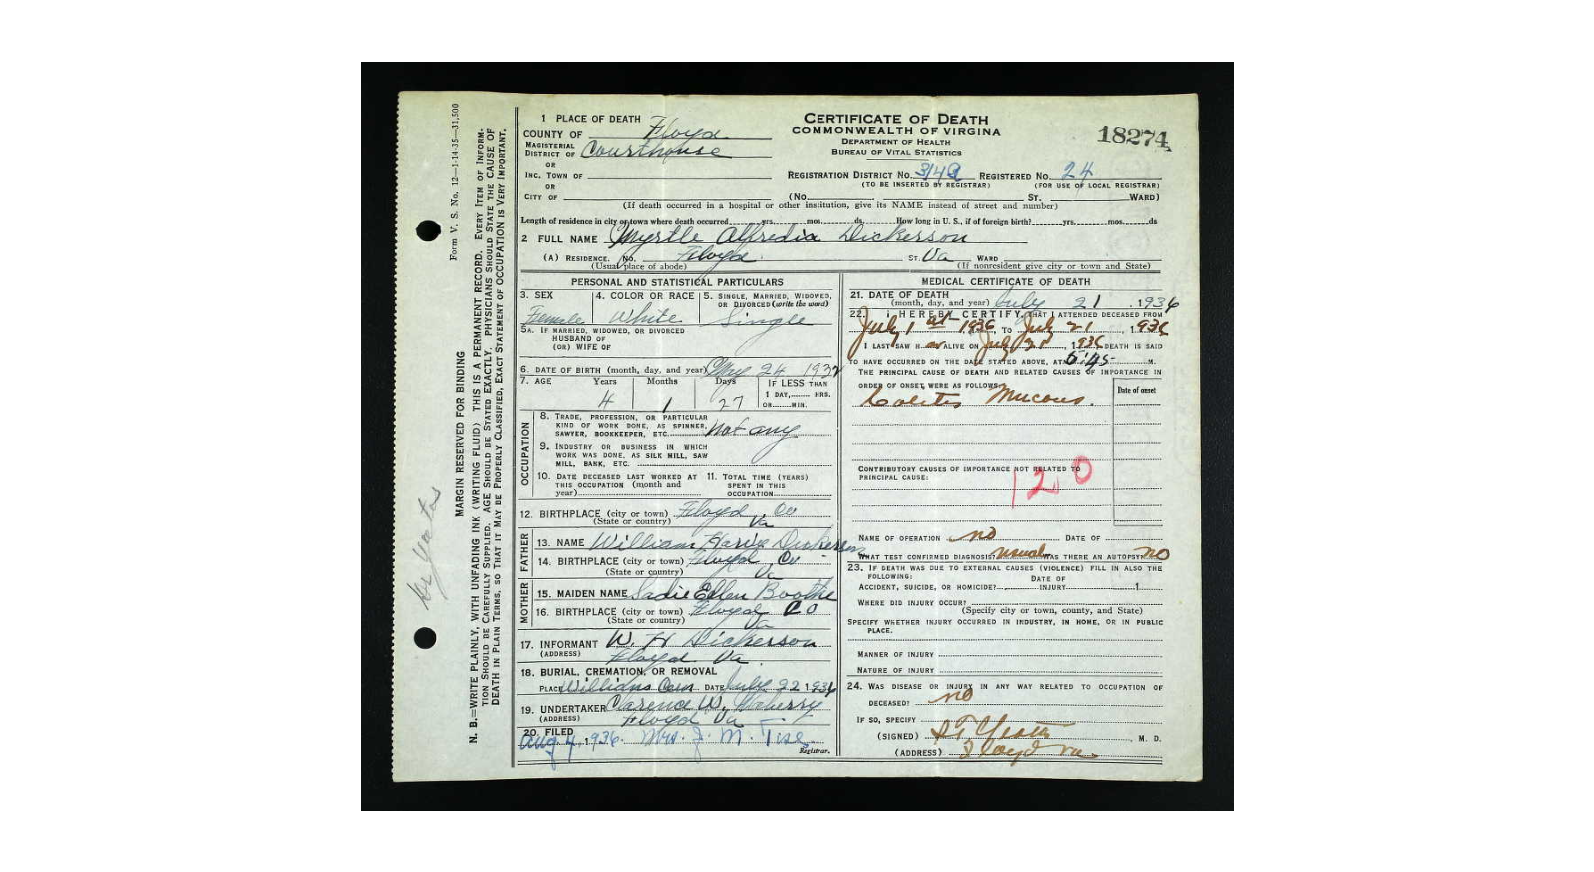 Form V. S. No. 12—1-14-35—31,500
MARGIN RESERVED FOR BINDING
N. B.—WRITE PLAINLY, WITH UNFADING INK (WRITING FLUID) THIS IS A PERMANENT RECORD. EVERY ITEM OF INFORM-
TION SHOULD BE CAREFULLY SUPPLIED. AGE SHOULD BE STATED EXACTLY. PHYSICIANS SHOULD STATE THE CAUSE OF
DEATH IN PLAIN TERMS, SO THAT IT MAY BE PROPERLY CLASSIFIED. EXACT STATEMENT OF OCCUPATION IS VERY IMPORTANT.
CERTIFICATE OF DEATH
COMMONWEALTH OF VIRGINA
DEPARTMENT OF HEALTH
BUREAU OF VITAL STATISTICS
18274
1 PLACE OF DEATH
COUNTY OF Floyd
MAGISTERIAL DISTRICT OF Courthouse
OR
INC. TOWN OF
OR
CITY OF
REGISTRATION DISTRICT No. REGISTERED No. 24
(TO BE INSERTED BY REGISTRAR) (FOR USE OF LOCAL REGISTRAR)
(No. ST. WARD)
(If death occurred in a hospital or other institution, give its NAME instead of street and number)
Length of residence in city or town where death occurred yrs. mos. ds. How long in U. S., if of foreign birth? yrs. mos. ds
2 FULL NAME Myrtle Alfredia Dickerson
(A) RESIDENCE. No. Floyd ST. Va WARD
(Usual place of abode) (If nonresident give city or town and State)
PERSONAL AND STATISTICAL PARTICULARS
3. SEX 4. COLOR OR RACE 5. SINGLE, MARRIED, WIDOWED, OR DIVORCED (write the word)
Female White Single
5A. IF MARRIED, WIDOWED, OR DIVORCED
HUSBAND OF
(OR) WIFE OF
6. DATE OF BIRTH (month, day, and year) May 24 1932
7. AGE Years Months Days IF LESS THAN
1 DAY, HRS.
OR MIN.
4 1 27
OCCUPATION
8. TRADE, PROFESSION, OR PARTICULAR
KIND OF WORK DONE, AS SPINNER,
SAWYER, BOOKKEEPER, ETC. Not any
9. INDUSTRY OR BUSINESS IN WHICH
WORK WAS DONE, AS SILK MILL, SAW
MILL, BANK, ETC.
10. DATE DECEASED LAST WORKED AT
THIS OCCUPATION (month and
year)
11. TOTAL TIME (YEARS)
SPENT IN THIS
OCCUPATION
12. BIRTHPLACE (city or town) Floyd Co
(State or country) Va
FATHER
13. NAME William Dickerson
14. BIRTHPLACE (city or town) Floyd Co
(State or country) Va
MOTHER
15. MAIDEN NAME Sadie Ellen Boothe
16. BIRTHPLACE (city or town) Floyd Co
(State or country) Va
17. INFORMANT W. H Dickerson
(ADDRESS) Floyd Va
18. BURIAL, CREMATION, OR REMOVAL
PLACE Williams Cem DATE July 22 1936
19. UNDERTAKER Clarence W.
(ADDRESS) Floyd Va
20. FILED Aug 4 1936. Mrs. J. M. Tise
Registrar.
MEDICAL CERTIFICATE OF DEATH
21. DATE OF DEATH
(month, day, and year) July 21 1936
22. I HEREBY CERTIFY, THAT I ATTENDED DECEASED FROM
July 1st 1936, TO July 21, 1936
I LAST SAW H ALIVE ON July 21, 1936 DEATH IS SAID
TO HAVE OCCURRED ON THE DATE STATED ABOVE, AT 6:45 M.
THE PRINCIPAL CAUSE OF DEATH AND RELATED CAUSES OF IMPORTANCE IN
ORDER OF ONSET WERE AS FOLLOWS: Date of onset
Colitis Mucous.
CONTRIBUTORY CAUSES OF IMPORTANCE NOT RELATED TO
PRINCIPAL CAUSE:
120
NAME OF OPERATION no DATE OF
WHAT TEST CONFIRMED DIAGNOSIS usual WAS THERE AN AUTOPSY no
23. IF DEATH WAS DUE TO EXTERNAL CAUSES (VIOLENCE) FILL IN ALSO THE
FOLLOWING:
ACCIDENT, SUICIDE, OR HOMICIDE? DATE OF INJURY 1
WHERE DID INJURY OCCUR?
(Specify city or town, county, and State)
SPECIFY WHETHER INJURY OCCURRED IN INDUSTRY, IN HOME, OR IN PUBLIC
PLACE.
MANNER OF INJURY
NATURE OF INJURY
24. WAS DISEASE OR INJURY IN ANY WAY RELATED TO OCCUPATION OF
DECEASED? no
IF SO, SPECIFY
(SIGNED) M. D.
(ADDRESS) Floyd Va